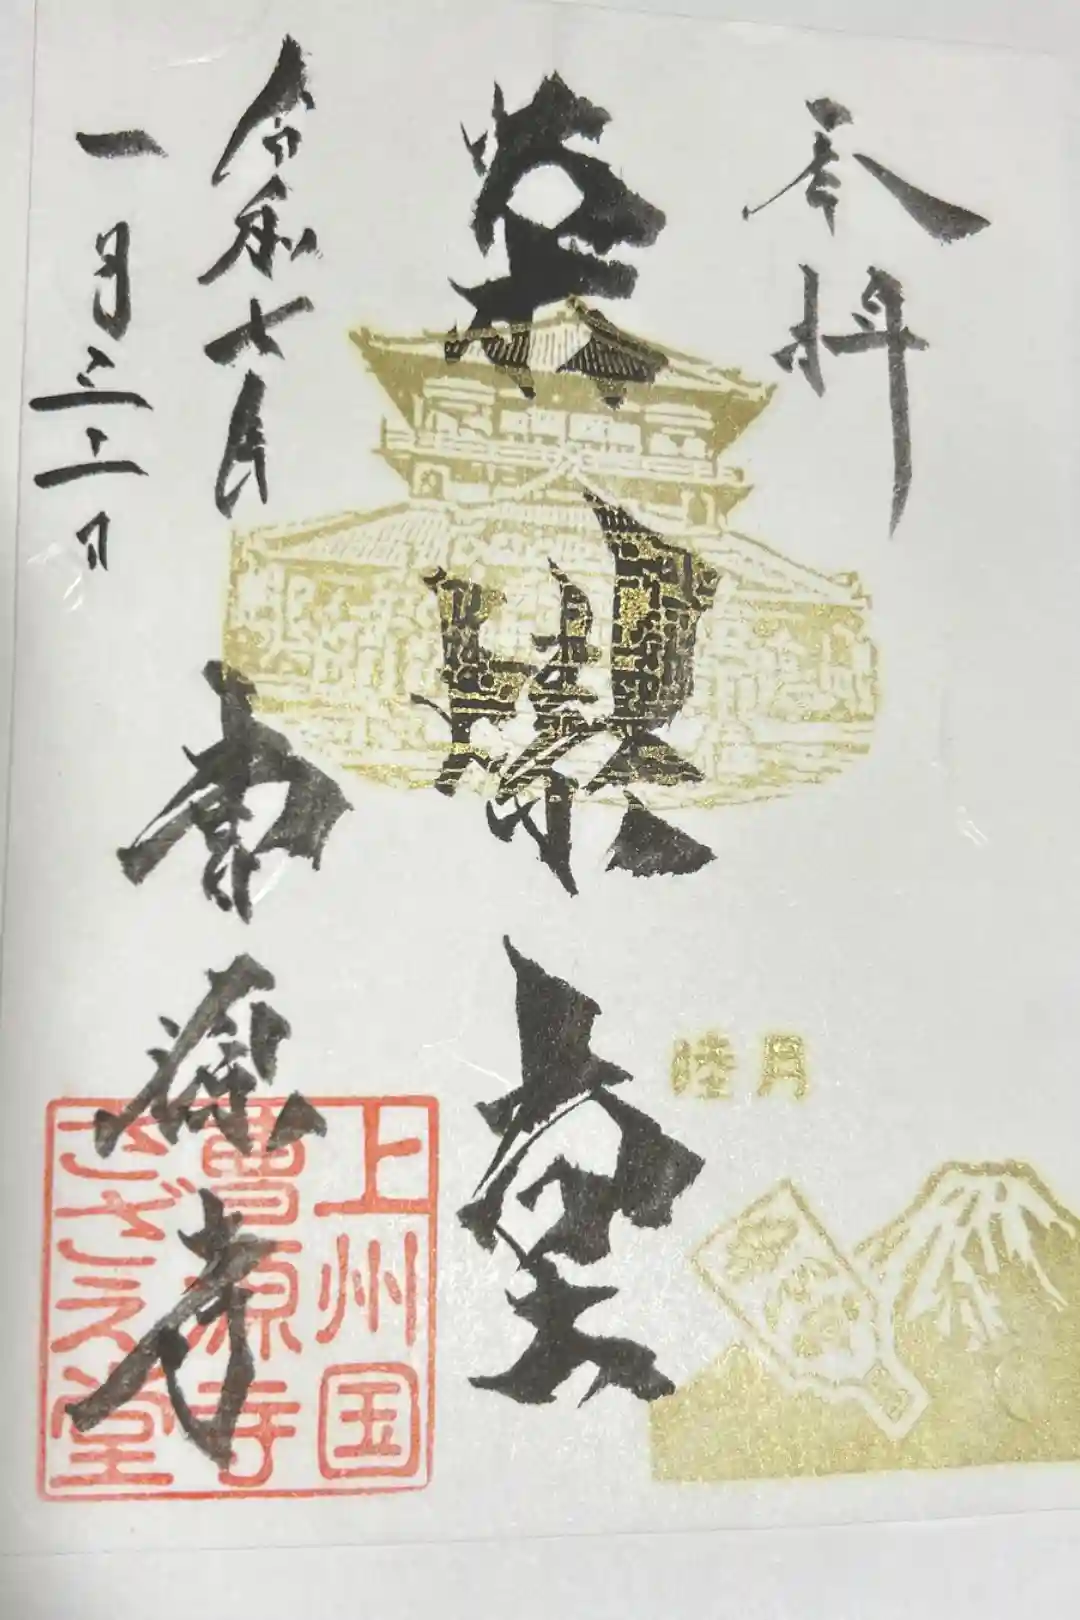 奉拝
栄螺堂
睦月
令和七年
一月三
日
曹源寺
上州国
曹源寺
さざえ堂